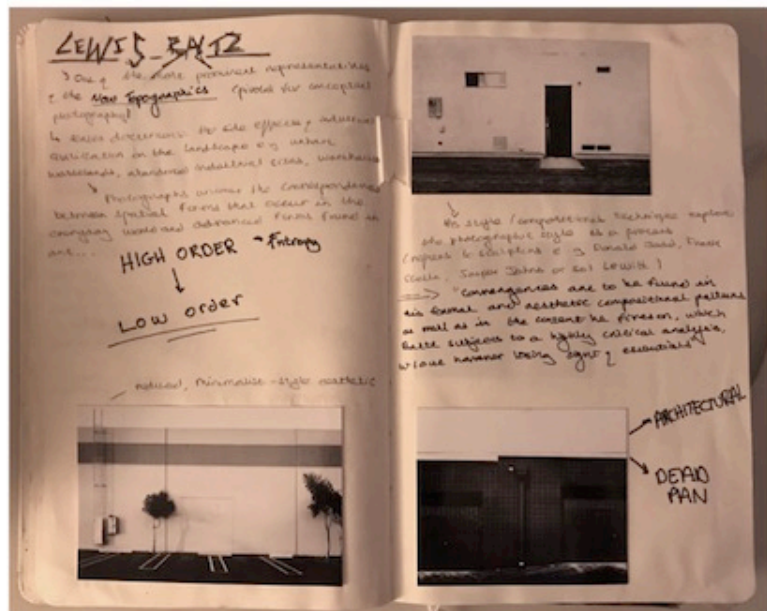 LEWIS BALTZ
One of the more prominent representatives
of the New Topographics (pivotal for conceptual
photography)
↳ draws directions to side effects of industrial
on the landscape e.g. urban
wastelands, abandoned industrial sites, warehouses
Photographs uncover the correspondences
between spatial forms that occur in the
everyday world and advanced forms found in
art...
HIGH ORDER → Entropy
Low order
radical, minimalist-style aesthetic
His style / compositional technique explores
the photographic style as a process
sculptors e.g. Donald Judd, Frank
Stella, Jasper Johns or Sol Lewitt)
"Convergences are to be found in
his formal and aesthetic compositional patterns
as well as in the content he fires on, which
Baltz subjects to a highly critical analysis,
without however losing sight of essentials"
ARCHITECTURAL
DEAD
PAN